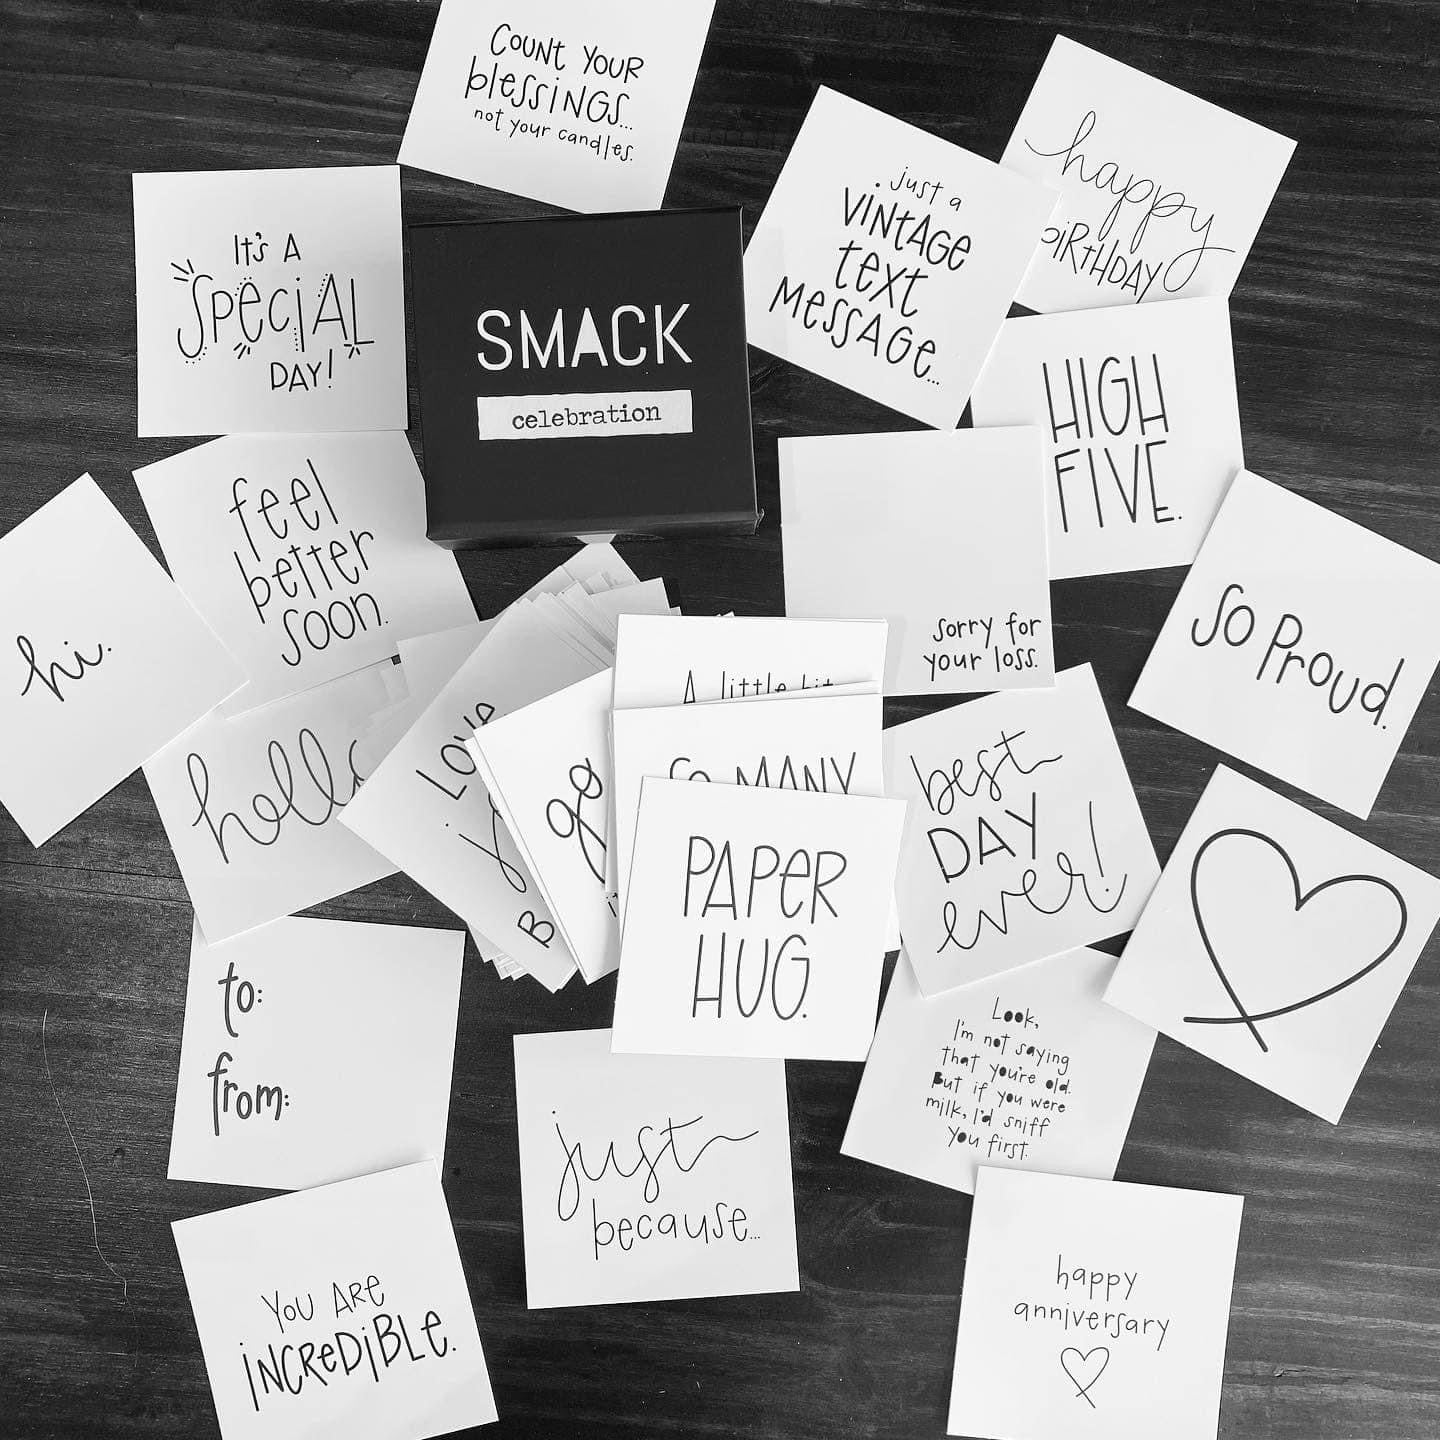 COUNT YOUR
blessINGS...
not your candles.
just a
VINTAGE
text
MessAGe...
happy
BIRTHDAY
IT'S A
SPeciAL
DAY!
SMACK
celebration
HIGH
FIVE.
feel
better
soon.
hi.
sorry for
your loss.
so Proud.
A little bit
SO MANY
hello
LOVE
go
B
PAPeR
HUG.
best
DAY
ever!
to:
from:
Look,
I'm not saying
that you're old.
But if you were
milk, I'd sniff
you first.
just
because...
YOU ARe
iNCReDiBLe.
happy
anniversary